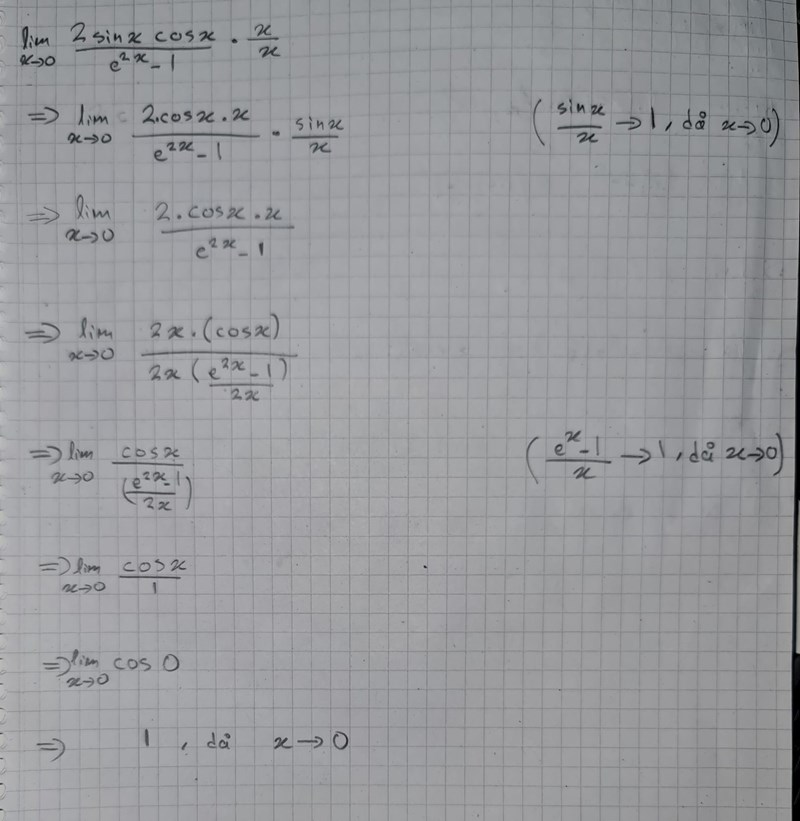 lim x→0 (2 sinx cosx)/(e^(2x) - 1) · x/x
⇒ lim x→0 (2·cosx·x)/(e^(2x) - 1) · (sinx)/x (sinx/x → 1, då x→0)
⇒ lim x→0 (2·cosx·x)/(e^(2x) - 1)
⇒ lim x→0 (2x·(cosx))/(2x((e^(2x) - 1)/(2x)))
⇒ lim x→0 (cosx)/((e^(2x) - 1)/(2x)) ((e^x - 1)/x → 1, då x→0)
⇒ lim x→0 (cosx)/1
⇒ lim x→0 cos 0
⇒ 1, då x→0